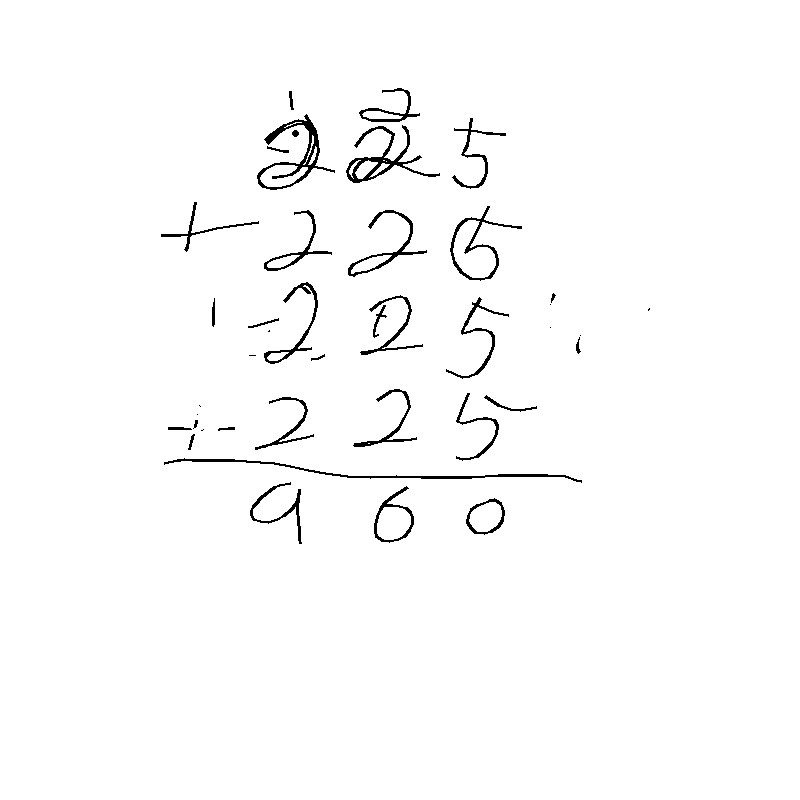 1 2
2 2 5
+ 2 2 5
2 2 5
+ 2 2 5
9 6 0